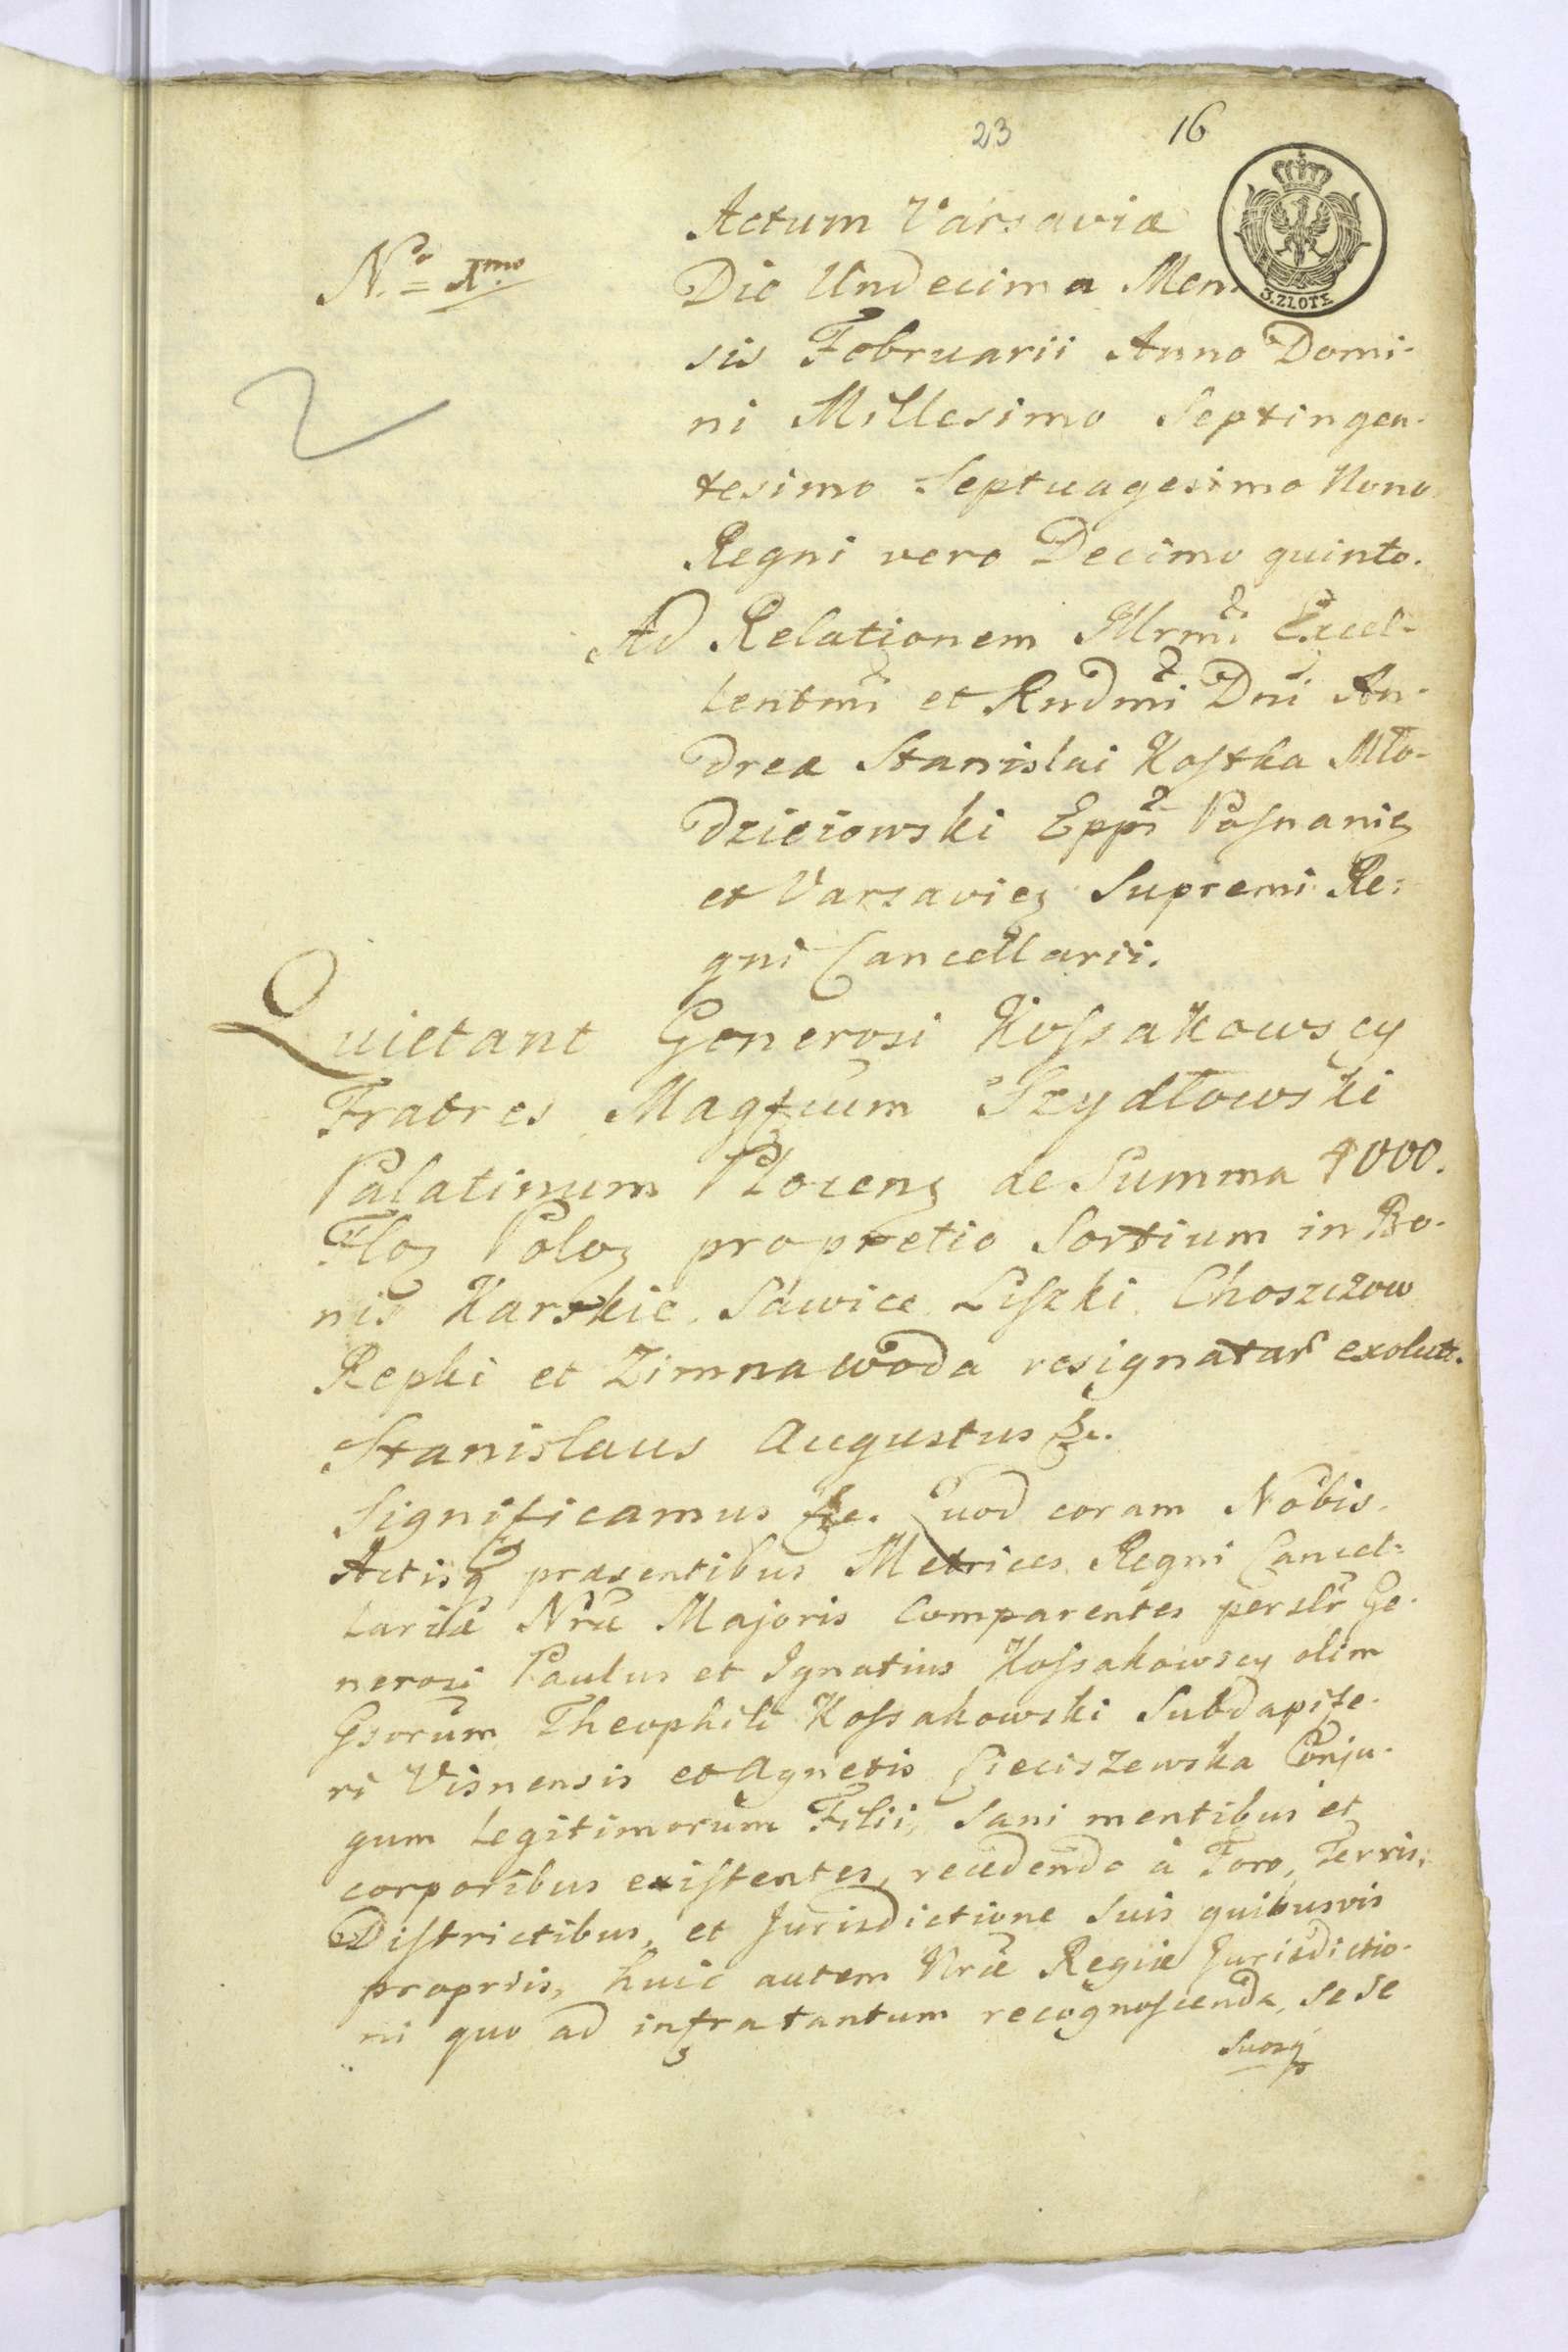 23 16
3. ZŁOTE
Actum Varsaviæ
N.º = 1mo
Die Undecima Men
sis Februarii Anno Domi-
ni Millesimo Septingen-
tesimo Septuagesimo Nono
Regni vero Decimo quinto.
Ad Relationem Illrmi Excel-
lentmi et Rndmi Dni An-
dreæ Stanislai Kostka Mło-
dzieiowski Eppi Posnaniẽ
et Varsaviẽ Supremi Re:
gni Cancellarii.
Quietant Generosi Kossakowscy
Fratres Magfcum Szydłowski
Palatinum Plocenẽ de Summa 4000.
Floẽ Poloẽ pro pretio Sortium in Bo-
nis Karskie, Sawice Liszki Choszczow
Repki et Zimna woda resignatar exolutt.
Stanislaus Augustus &c.
Significamus &c. Quod coram Nobis
Actisq præsentibus Metrices Regni Cancel-
lariæ Nræ Majoris Comparentes perslr Ge-
nerosi Paulus et Ignatius Kossakowscy olim
Gsorum Theophili Kossakowski Subdapife-
ri Visnensis et Agnetis Cieciszewska Conju-
gum Legitimorum Filii, Sani mentibus et
corporibus existentes, recedendo à Foro, Terris,
Districtibus, et Jurisdictione suis quibusvis
propriis, huic autem Nræ Regiæ Jurisdictio-
ni quo ad infra tantum recognoscenda, sese
suosq